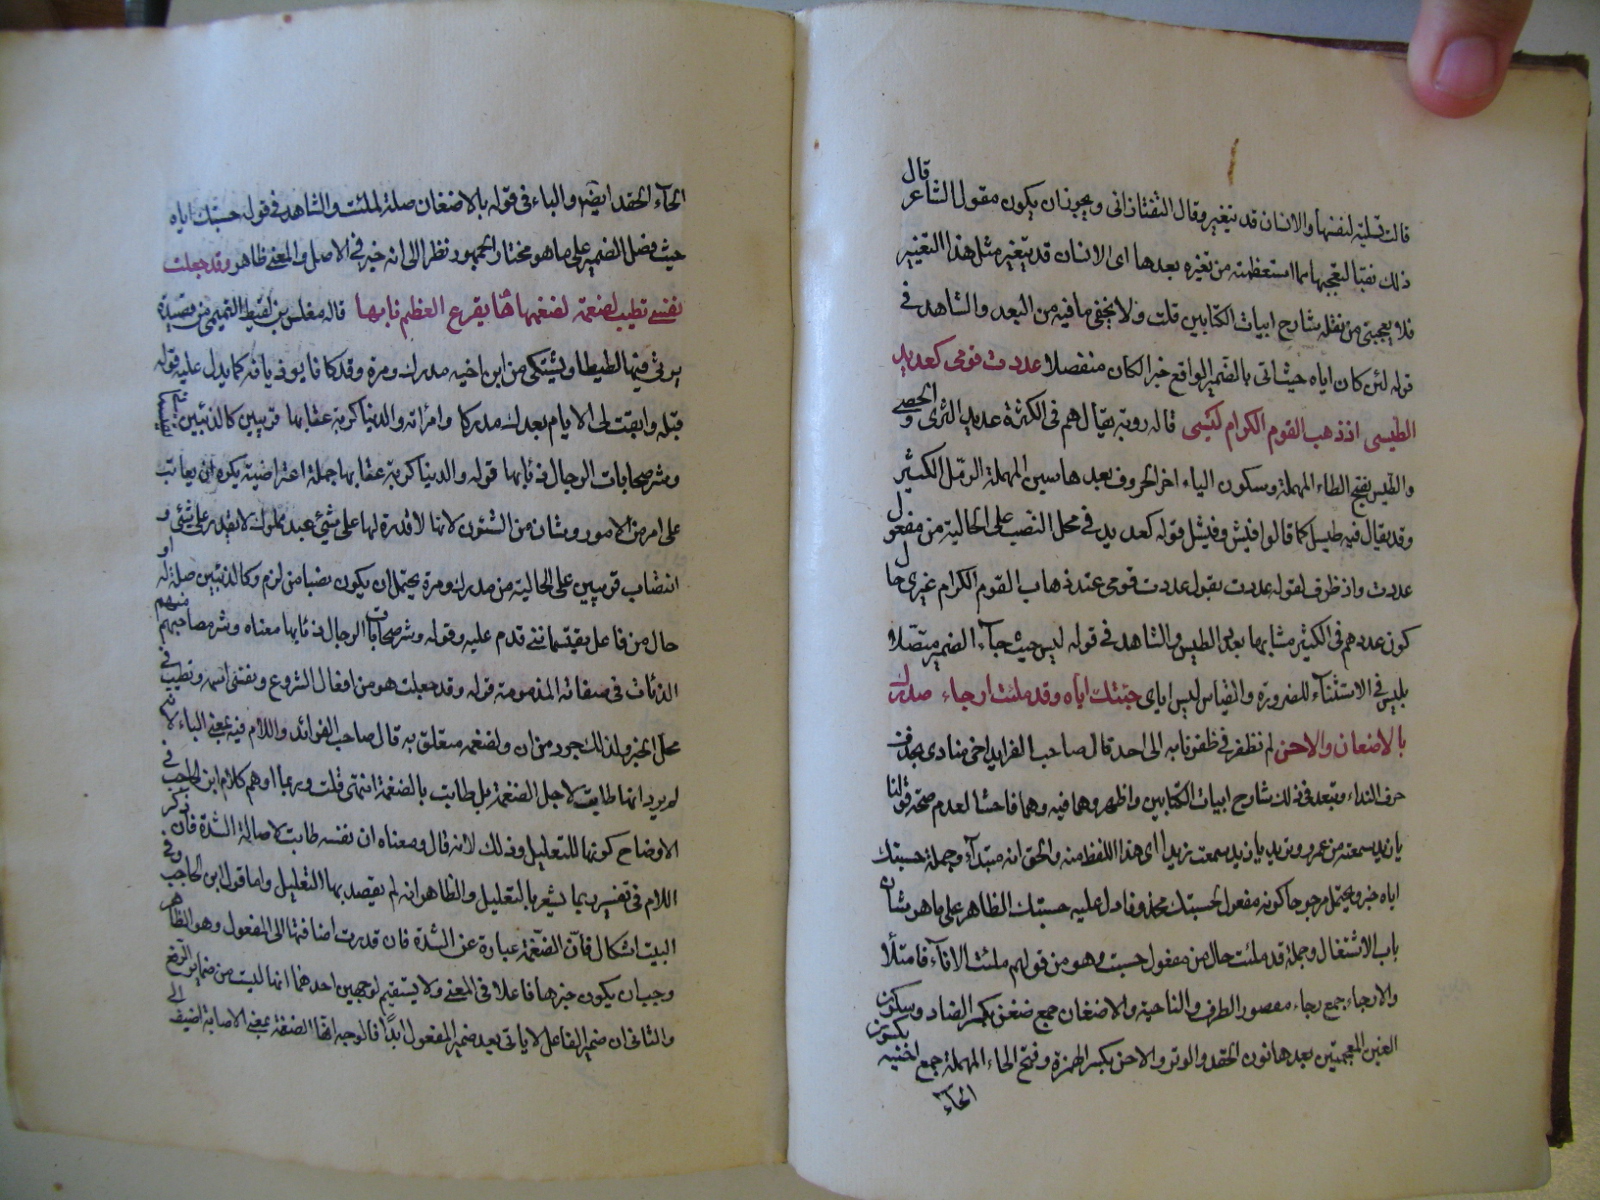 قالت تسلية لنفسها والانسان قد يتغير وقال التفتازانى ويجوز ان يكون مقول الشاعر قال
ذلك نفيا لتعجبها مما استعظمته من تغيره بعدها اى الانسان قد يتغير مثل هذا التغيير
فلا يعجبنى من نقله شارح ابيات الكتابين قلت ولا يخفى ما فيه من البعد والشاهد فى
قوله لئن كان اياه حيث اتى بالضمير الواقع خبر الكان منفصلا عددت قومى كعديد
الطيس اذ ذهب القوم الكرام ليسى قاله روبة يقال هم فى الكثرة عديد الثرى والحصى
والطيس بفتح الطاء المهملة وسكون الياء اخر الحروف بعدها سين المهملة الرمل الكثير
وقد يقال فيه طيسل كما قالوا فيش وفيشل قوله كعديد فى محل النصب على الحالية من مفعول
عددت واذ ظرف لقوله عددت يقول عددت قومى عند ذهاب القوم الكرام غيرى حال
كون عددهم فى الكثير مشابها بعدد الطيس والشاهد فى قوله ليسى حيث جآء الضمير متصلا
بليس فى الاستثنآء للضرورة والقياس ليس اياى حسبتك اياه وقد ملئت ارجاء صدرك
بالاضغان والاحن لم نظفر فى ظفرنا به الى احد قال صاحب الفرايد اخى منادى بحذف
حرف النداء وتبعه فى ذلك شارح ابيات الكتابين واظهر وهما فيه وهما فاحشا لعدم صحة قولنا
يا زيد سمعته من عمرو وتريد يا زيد سمعت زيدا اى هذا اللفظ منه والحق انه مبتدآء وجملة حسبتك
اياه خبره ويحتمل مرجوحا كونه مفعول لحسبتك محذوفا دل عليه حسبتك الظاهر على ما هو شان
باب الاشتغال وجملة قد ملئت حال من مفعول حسبت وهو من قولهم ملئت الانآء فامتلأ
والارجاء جمع رجاء مقصور الطرف والناحية والاضغان جمع ضغن بكسر الضاد وسكون
الغين المعجمتين بعدها نون الحقد والوتر والاحن بكسر الهمزة وفتح الحاء المهملة جمع احنة بكون
الحآء
الحآء الحقد ايضا والباء فى قوله بالاضغان صلة لملئت والشاهد فى قوله حسبتك اياه
حيث فصل الضمير على ما هو مختار الجمهور نظر الى انه خبر فى الاصل والمعنى ظاهر وقد جعلت
نفسى تطيب لضغمة لضغمهما ها يقرع العظم نابها قاله مغلس بن لقيط التميمى من قصيدة
يرثى فيها اطيطا ويشتكى من ابن اخيه مدرك ومرة وقد كانا يوذيانه كما يدل عليه قوله
قبله وابقت لى الايام بعدك مدركا وامراته والدنيا كربة عقابها قريبين كالذئبين
وشر صحابات الرجال ذئابها قوله والدنيا كربة عقابها جملة اعتراضية يكره ان يعاتب
على امر من الامور وشان من الشئون لانها لا قدرة لها على شئ عبد مملوك لا يقدر على شئ و
انتصاب قريبين على الحالية من مدرك ومرة يحتمل ان يكون وكالذئبين صلة له او
حال من فاعل يقتسماننى قدم عليه وقوله وشر صحابات الرجال ذئابها معناه وشر مصاحبهم منهم
الذئاب فى صفاته المذمومة قوله وقد جعلت هو من افعال الشروع ونفسى اسمه وتطيب فى
محل الخبر ولذلك جرد من ان ولضغمة متعلق به قال صاحب الفوائد واللام فيه بمعنى الباء لانه
لم يرد انها طابت لاجل الضغمة بل طابت بالضغمة انتهى قلت وربما اوهم كلام ابن الحاجب فى
الاوضاح كونها للتعليل وذلك لانه قال ومعناه ان نفسه طابت لاصالة الشدة فان ذكر
اللام فى تفسيره بما يشعر بالتعليل والظاهر انه لم يقصد بها التعليل واما قول ابن الحاجب وفى
البيت اشكال فان الضغمة عبارة عن الشدة فان قدرت اضافتها الى المفعول وهو الظاهر
وجب ان يكون خبرها فاعلا فى المعنى ولا يستقيم لوجهين احدهما انها ليست من ضماير الرفع
والثانى ان ضمير الفاعل لا ياتى بعد ضمير المفعول ابدا فالوجه الضغمة بمعنى الاصابة اضيف الى